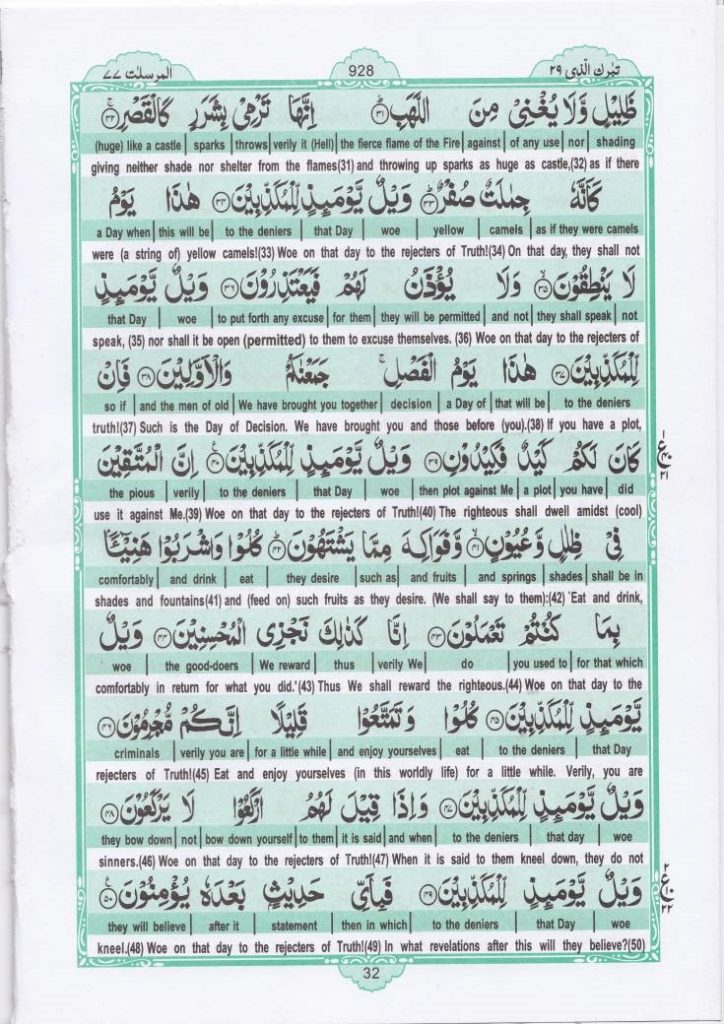 تبٰرك الّذى ٢٩ 928 المرسلٰت ٧٧
ظَلِيْلٍ وَّلَا يُغْنِىْ مِنَ اللَّهَبِ ﴿٣١﴾ اِنَّهَا تَرْمِىْ بِشَرَرٍ كَالْقَصْرِ ﴿٣٢﴾
(huge) like a castle | sparks | throws | verily it (Hell) | the fierce flame of the Fire | against | of any use | nor | shading
giving neither shade nor shelter from the flames(31) and throwing up sparks as huge as castle,(32) as if there
كَاَنَّهٗ جِمٰلَتٌ صُفْرٌ ﴿٣٣﴾ وَيْلٌ يَّوْمَئِذٍ لِّلْمُكَذِّبِيْنَ ﴿٣٤﴾ هٰذَا يَوْمُ
a Day when | this will be | to the deniers | that Day | woe | yellow | camels | as if they were camels
were (a string of) yellow camels!(33) Woe on that day to the rejecters of Truth!(34) On that day, they shall not
لَا يَنْطِقُوْنَ ﴿٣٥﴾ وَلَا يُؤْذَنُ لَهُمْ فَيَعْتَذِرُوْنَ ﴿٣٦﴾ وَيْلٌ يَّوْمَئِذٍ
that Day | woe | to put forth any excuse | for them | they will be permitted | and not | they shall speak | not
speak, (35) nor shall it be open (permitted) to them to excuse themselves. (36) Woe on that day to the rejecters of
لِّلْمُكَذِّبِيْنَ ﴿٣٧﴾ هٰذَا يَوْمُ الْفَصْلِ ۚ جَمَعْنٰكُمْ وَالْاَوَّلِيْنَ ﴿٣٨﴾ فَاِنْ
so if | and the men of old | We have brought you together | decision | a Day of | that will be | to the deniers
truth!(37) Such is the Day of Decision. We have brought you and those before (you).(38) If you have a plot,
كَانَ لَكُمْ كَيْدٌ فَكِيْدُوْنِ ﴿٣٩﴾ وَيْلٌ يَّوْمَئِذٍ لِّلْمُكَذِّبِيْنَ ﴿٤٠﴾ اِنَّ الْمُتَّقِيْنَ
the pious | verily | to the deniers | that Day | woe | then plot against Me | a plot | you have | did
use it against Me.(39) Woe on that day to the rejecters of Truth!(40) The righteous shall dwell amidst (cool)
فِىْ ظِلٰلٍ وَّعُيُوْنٍ ﴿٤١﴾ وَّفَوَاكِهَ مِمَّا يَشْتَهُوْنَ ﴿٤٢﴾ كُلُوْا وَاشْرَبُوْا هَنِيْٓــًٔا
comfortably | and drink | eat | they desire | such as | and fruits | and springs | shades | shall be in
shades and fountains(41) and (feed on) such fruits as they desire. (We shall say to them):(42) `Eat and drink,
بِمَا كُنْتُمْ تَعْمَلُوْنَ ﴿٤٣﴾ اِنَّا كَذٰلِكَ نَجْزِى الْمُحْسِنِيْنَ ﴿٤٤﴾ وَيْلٌ
woe | the good-doers | We reward | thus | verily We | do | you used to | for that which
comfortably in return for what you did.'(43) Thus We shall reward the righteous.(44) Woe on that day to the
يَّوْمَئِذٍ لِّلْمُكَذِّبِيْنَ ﴿٤٥﴾ كُلُوْا وَتَمَتَّعُوْا قَلِيْلًا اِنَّكُمْ مُّجْرِمُوْنَ ﴿٤٦﴾
criminals | verily you are | for a little while | and enjoy yourselves | eat | to the deniers | that Day
rejecters of Truth!(45) Eat and enjoy yourselves (in this worldly life) for a little while. Verily, you are
وَيْلٌ يَّوْمَئِذٍ لِّلْمُكَذِّبِيْنَ ﴿٤٧﴾ وَاِذَا قِيْلَ لَهُمُ ارْكَعُوْا لَا يَرْكَعُوْنَ ﴿٤٨﴾
they bow down | not | bow down yourself | to them | it is said | and when | to the deniers | that day | woe
sinners.(46) Woe on that day to the rejecters of Truth!(47) When it is said to them kneel down, they do not
وَيْلٌ يَّوْمَئِذٍ لِّلْمُكَذِّبِيْنَ ﴿٤٩﴾ فَبِاَىِّ حَدِيْثٍۢ بَعْدَهٗ يُؤْمِنُوْنَ ﴿٥٠﴾
they will believe | after it | statement | then in which | to the deniers | that Day | woe
kneel.(48) Woe on that day to the rejecters of Truth!(49) In what revelations after this will they believe?(50)
32